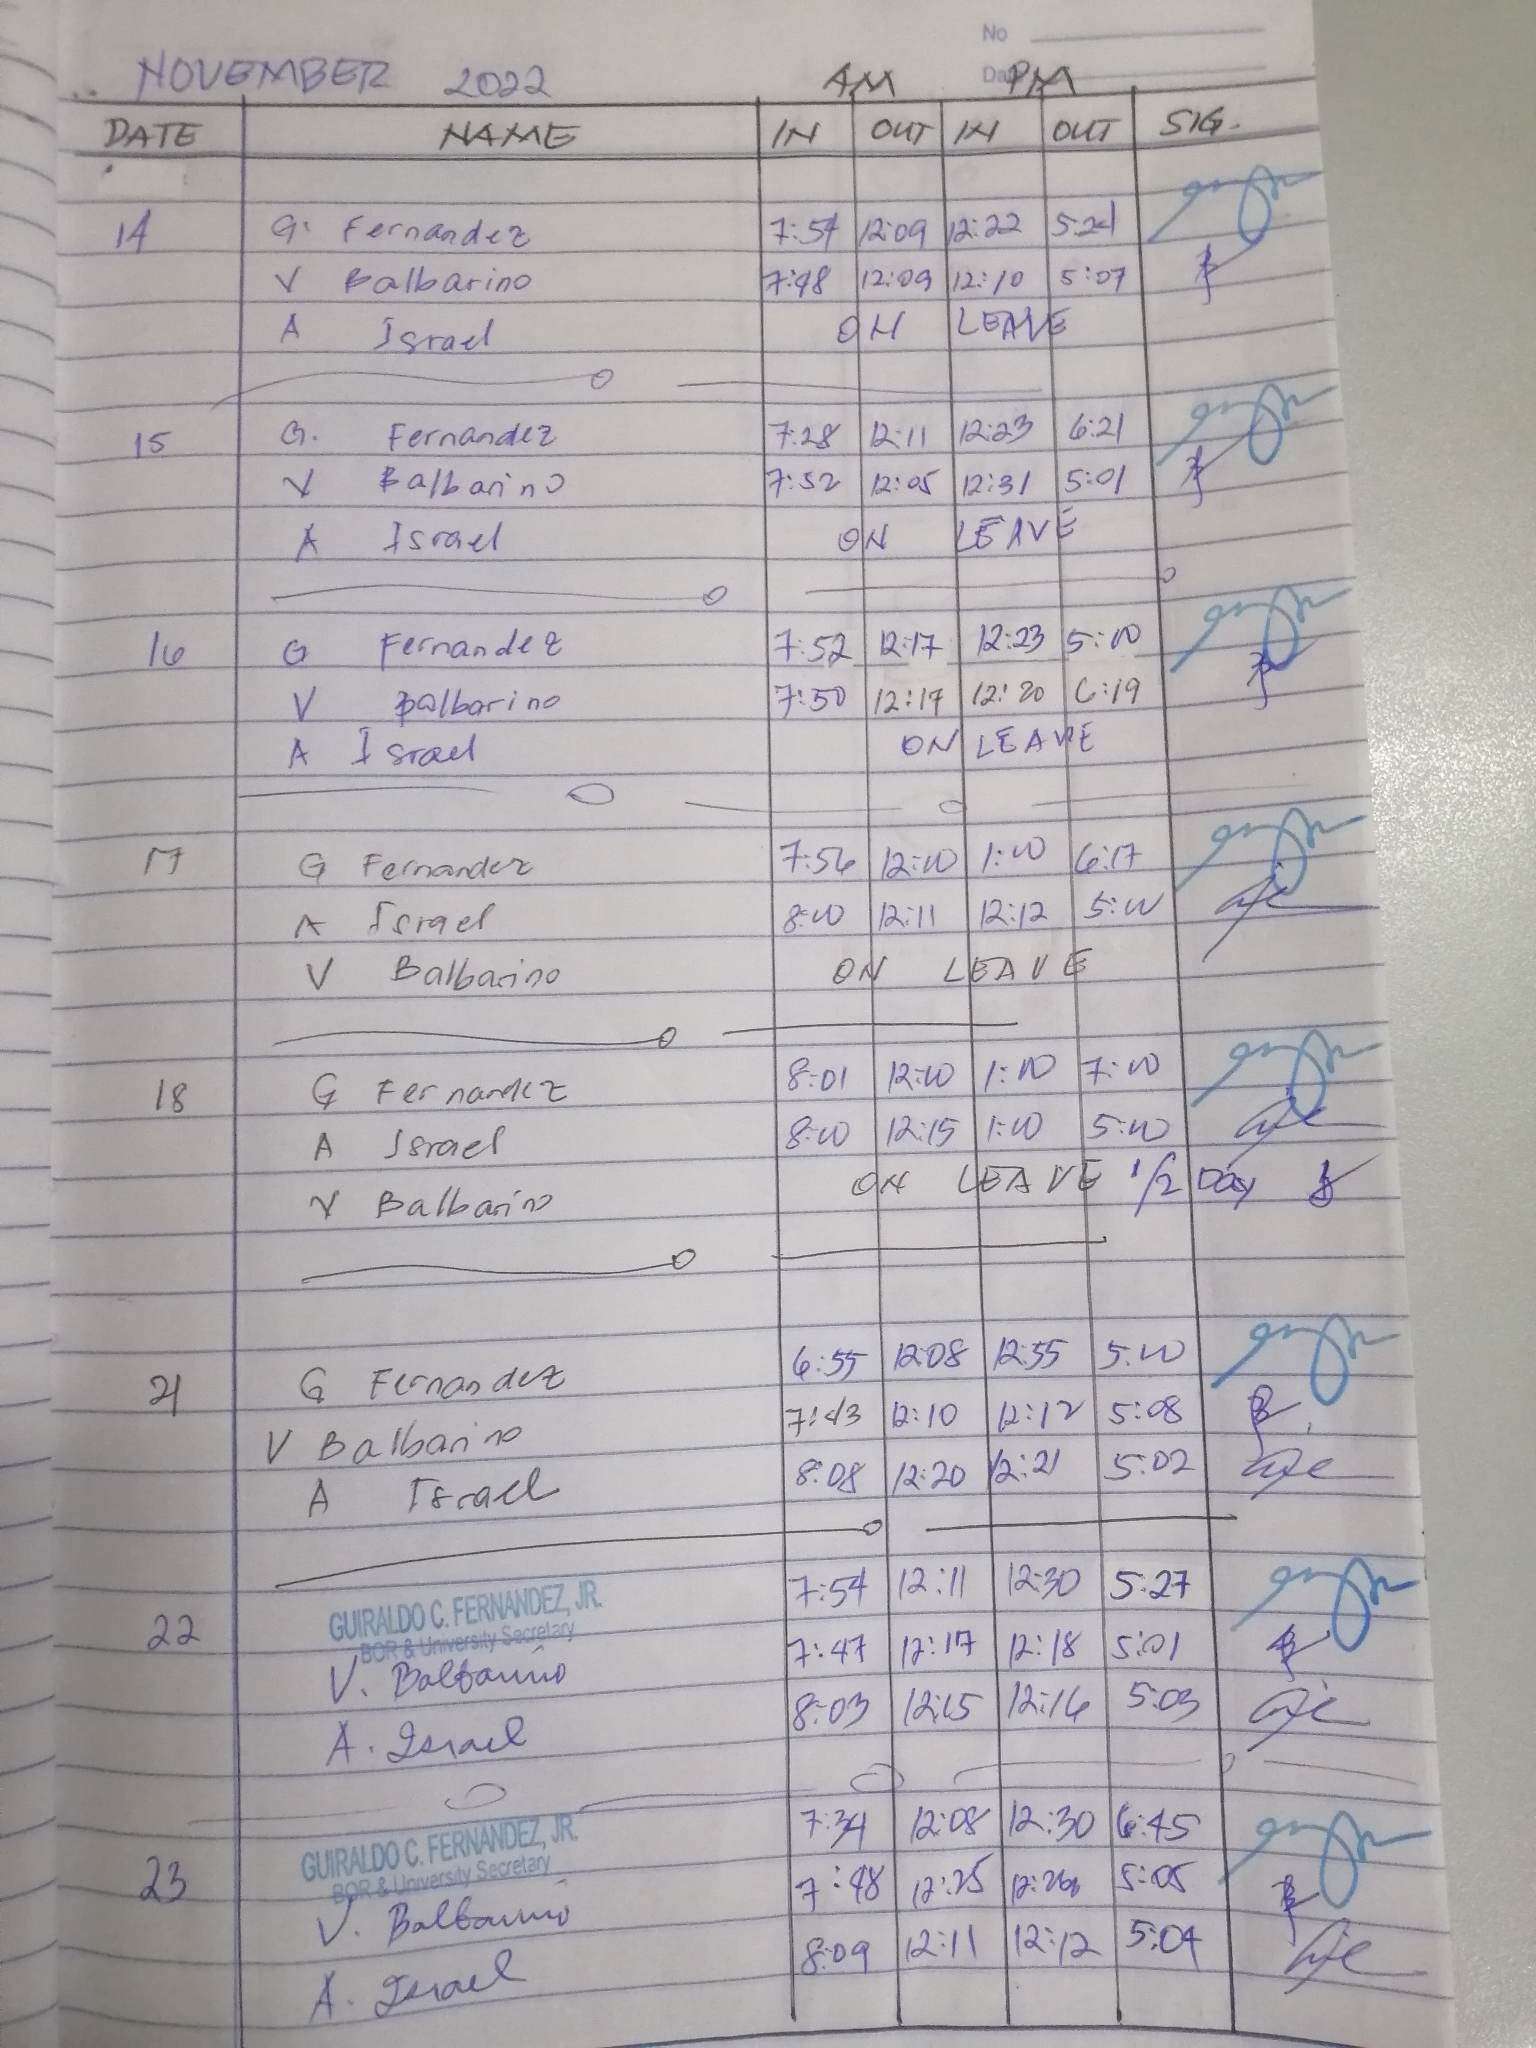 No
NOVEMBER 2022 AM PM
DATE NAME IN OUT IN OUT SIG.
14 G. Fernandez 7:54 12:09 12:22 5:24
V Balbarino 7:48 12:09 12:10 5:07
A Israel ON LEAVE
15 G. Fernandez 7:28 12:11 12:23 6:21
V Balbarino 7:52 12:05 12:31 5:01
A Israel ON LEAVE
16 G Fernandez 7:52 12:17 12:23 5:00
V Balbarino 7:50 12:17 12:20 6:19
A Israel ON LEAVE
17 G Fernandez 7:56 12:00 1:00 6:17
A Israel 8:00 12:11 12:12 5:00
V Balbarino ON LEAVE
18 G Fernandez 8:01 12:00 1:00 7:00
A Israel 8:00 12:15 1:00 5:00
V Balbarino ON LEAVE 1/2 Day
21 G Fernandez 6:55 12:08 12:55 5:00
V Balbarino 7:43 12:10 12:12 5:08
A Israel 8:08 12:20 12:21 5:02
22 GUIRALDO C. FERNANDEZ, JR. 7:54 12:11 12:30 5:27
BOR & University Secretary
V. Balbarino 7:47 12:17 12:18 5:01
A. Israel 8:03 12:15 12:16 5:03
23 GUIRALDO C. FERNANDEZ, JR. 7:34 12:08 12:30 6:45
BOR & University Secretary
V. Balbarino 7:48 12:25 12:26 5:05
A. Israel 8:09 12:11 12:12 5:04